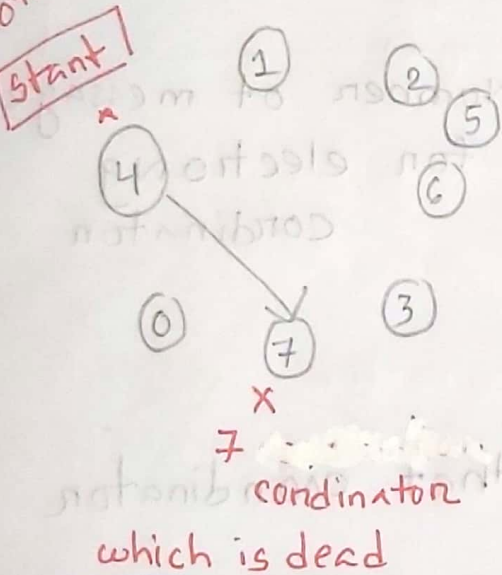 Start
1
2
5
4
6
0
3
7
X
7
cordinator
which is dead